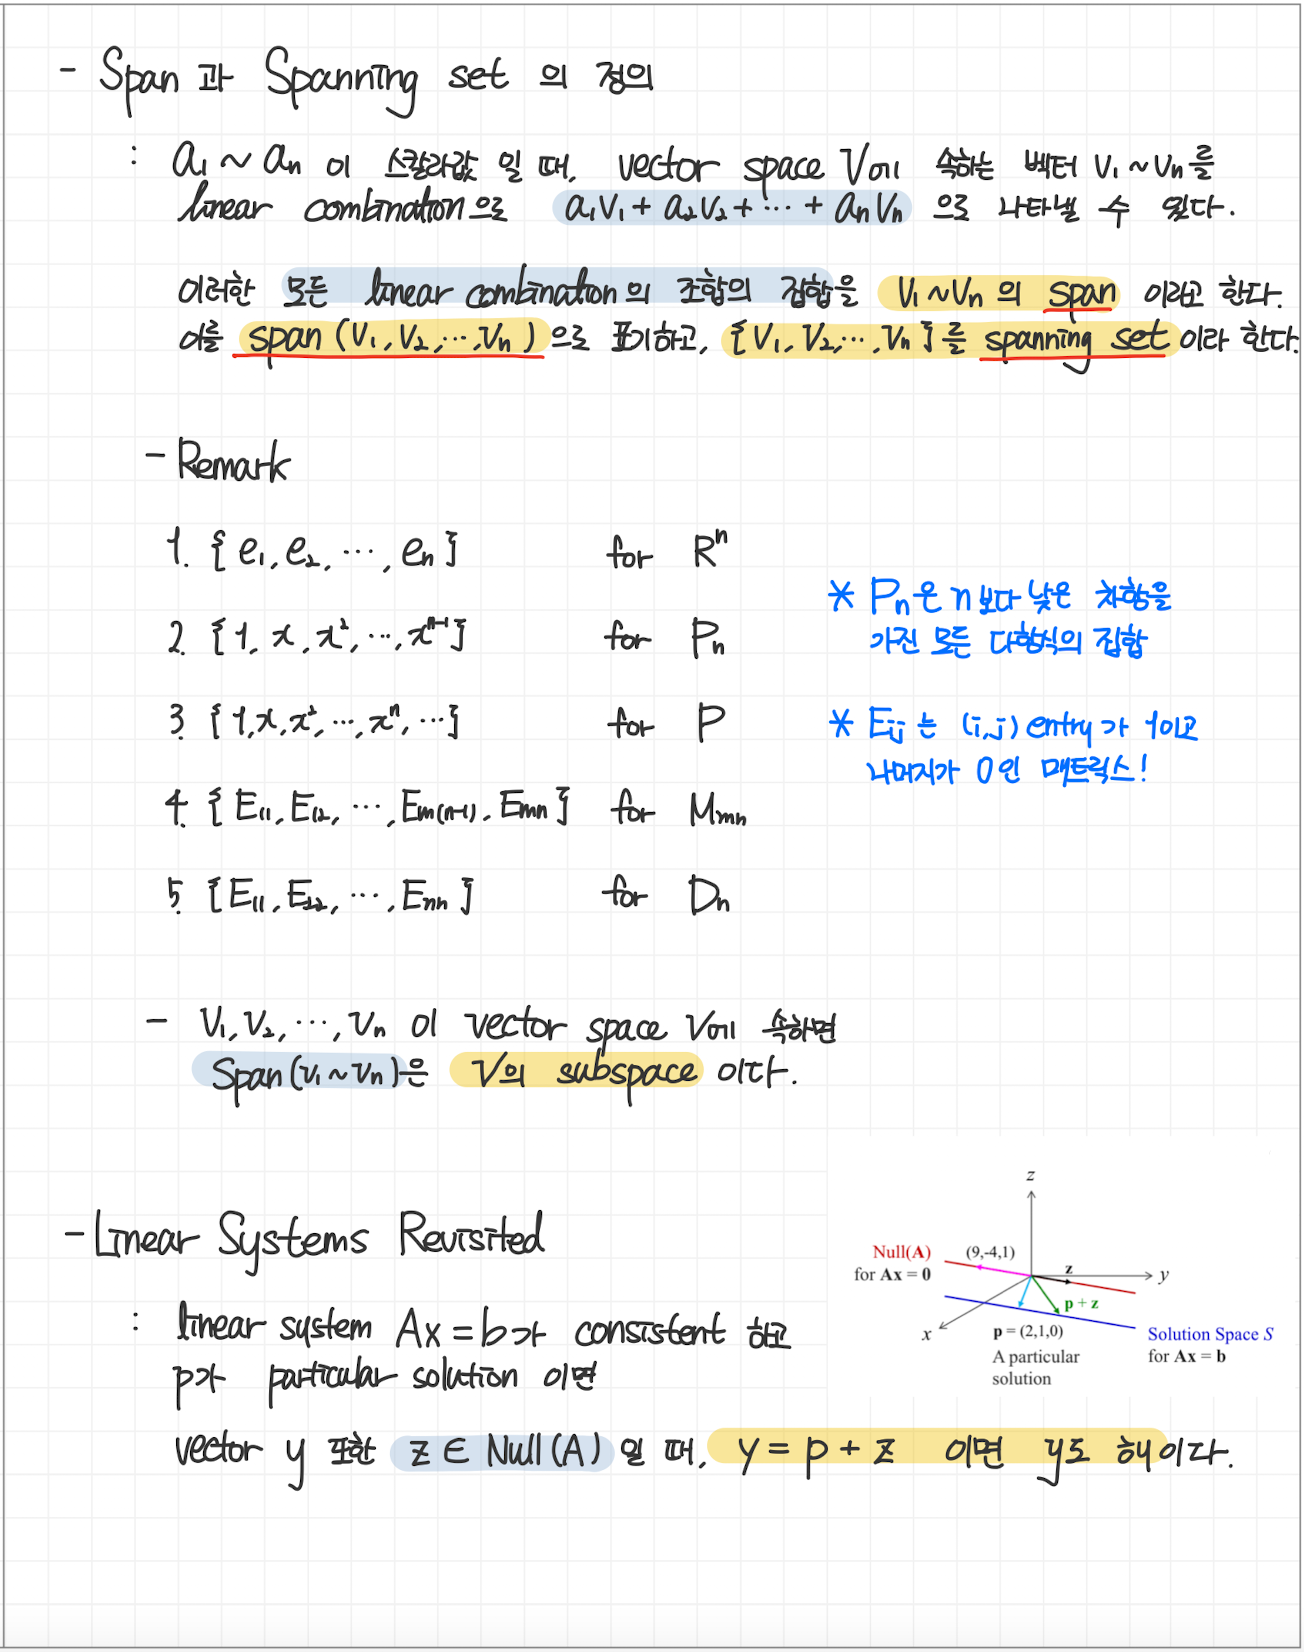 - Span 과 Spanning set 의 정의
: a₁ ~ aₙ 이 스칼라값 일 때, vector space V에 속하는 벡터 v₁ ~ vₙ를
linear combination으로 a₁v₁ + a₂v₂ + ⋯ + aₙvₙ 으로 나타낼 수 있다.
이러한 모든 linear combination의 조합의 집합을 v₁~vₙ 의 span 이라고 한다.
이를 span (v₁, v₂, ⋯, vₙ) 으로 표기하고, {v₁, v₂, ⋯, vₙ}를 spanning set 이라 한다.
- Remark
1. {e₁, e₂, ⋯, eₙ} for Rⁿ
2. {1, x, x², ⋯, xⁿ⁻¹} for Pₙ
3. {1, x, x², ⋯, xⁿ, ⋯} for P
4. {E₁₁, E₁₂, ⋯, Eₘ₍ₙ₋₁₎, Eₘₙ} for Mₘₙ
5. {E₁₁, E₂₂, ⋯, Eₙₙ} for Dₙ
* Pₙ은 n보다 낮은 차항을
가진 모든 다항식의 집합
* Eᵢⱼ 는 (i,j) entry가 1이고
나머지가 0인 매트릭스!
- v₁, v₂, ⋯, vₙ 이 vector space V에 속하면
Span (v₁ ~ vₙ)은 V의 subspace 이다.
- Linear Systems Revisited
: linear system Ax = b가 consistent 하고
p가 particular solution 이면
vector y 또한 z ∈ Null(A) 일 때, y = p + z 이면 y도 해이다.
z
Null(A)
for Ax = 0
(9,-4,1)
z
y
p + z
x
p = (2,1,0)
A particular
solution
Solution Space S
for Ax = b